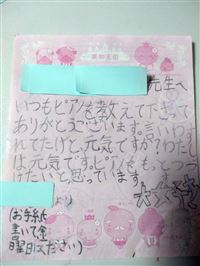 先生へ
いつもピアノを教えて下さって
ありがとうございます。言いわす
れてたけど、元気ですか?わたし
は元気です。ピアノをもっとつづ
けたいと思っています。
より
(お手紙
書いて金
曜日に下さい)